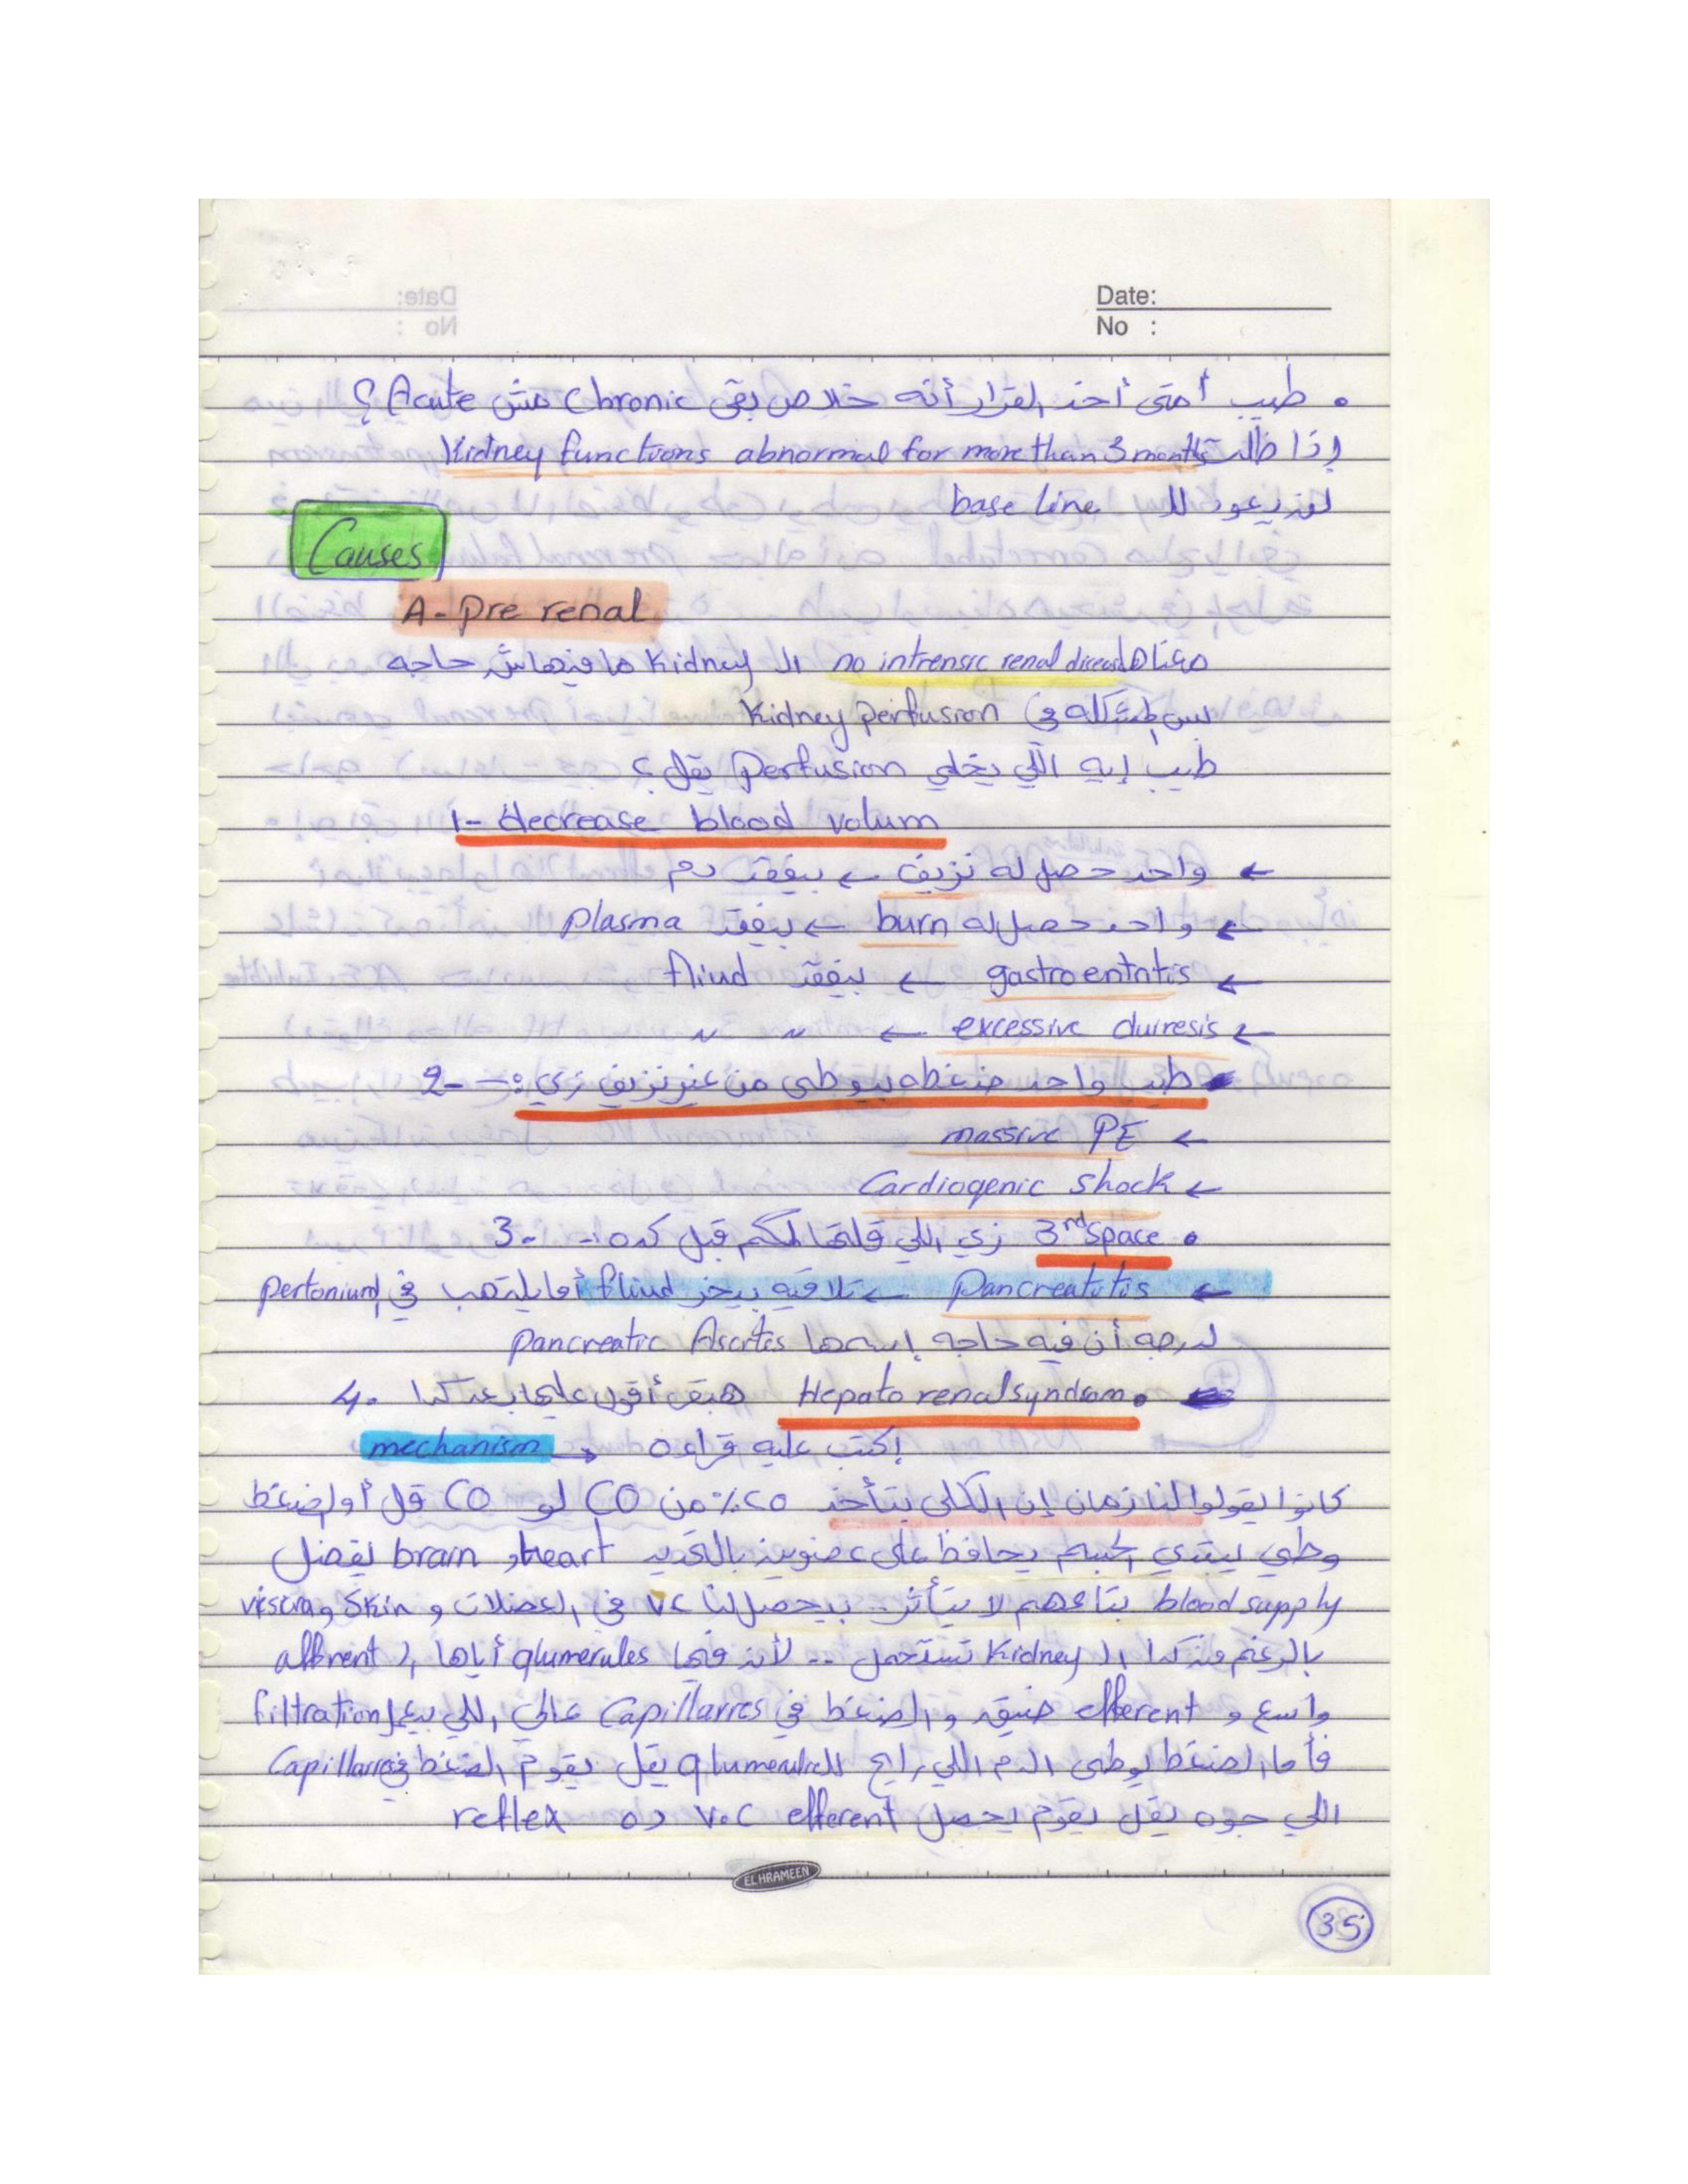 Date:
No :
• طيب أمتى أخد القرار أنه خلاص بقى Chronic مش Acute ؟
إذا ظلت Kidney functions abnormal for more than 3 months
base line لم يعود لل
Causes
A- Pre renal
معناه no intrensic renal disease ال Kidney ما فيهاش حاجه
بس المشكله في Kidney perfusion
طيب إيه اللي يخلي Perfusion يقل ؟
1- decrease blood volum
← واحد حصل له نزيف ← بيفقد دم
← واحد حصل له burn ← بيفقد plasma
← gastroentritis ← بيفقد fliud
← excessive duiresis ← 〃 〃
2- طيب واحد ضغطه بيوطى من غير نزيف زي :-
← massive PE
← Cardiogenic shock
3- • 3rd space زي اللي قلتها لكم قبل كده :-
← Pancreatitis ← تلاقيه بيخر fliud أما يلتهب في pertonium
لدرجه أن فيه حاجه إسمها Pancreatic Ascites
4. • Hepato renal syndrom هبقى أقول عليها بعد كدا
إكتب عليه قراءه → mechanism
كانوا يقولوا لنا زمان إن الكلى بتأخد ٢٥٪ من CO لو CO قل أو الضغط
وطي يبتدي الجسم يحافظ على عضوين بالتحديد heart و brain يفضل
blood supply بتاعهم لا يتأثر .. بيحصل لنا VC في العضلات و skin و viscra
بالرغم من كدا ال Kidney تستحمل .. لأن فيها glumerules أياها ، afferent
واسع و efferent ضيقه و الضغط في Capillarres عالي اللي بيعمل filtration
فأما الضغط يوطى الدم اللي رايح لل glumerules يقل يقوم الضغط في Capillarres
اللي جوه يقل يقوم يحصل V.C efferent ده reflex
EL HRAMEEN
35